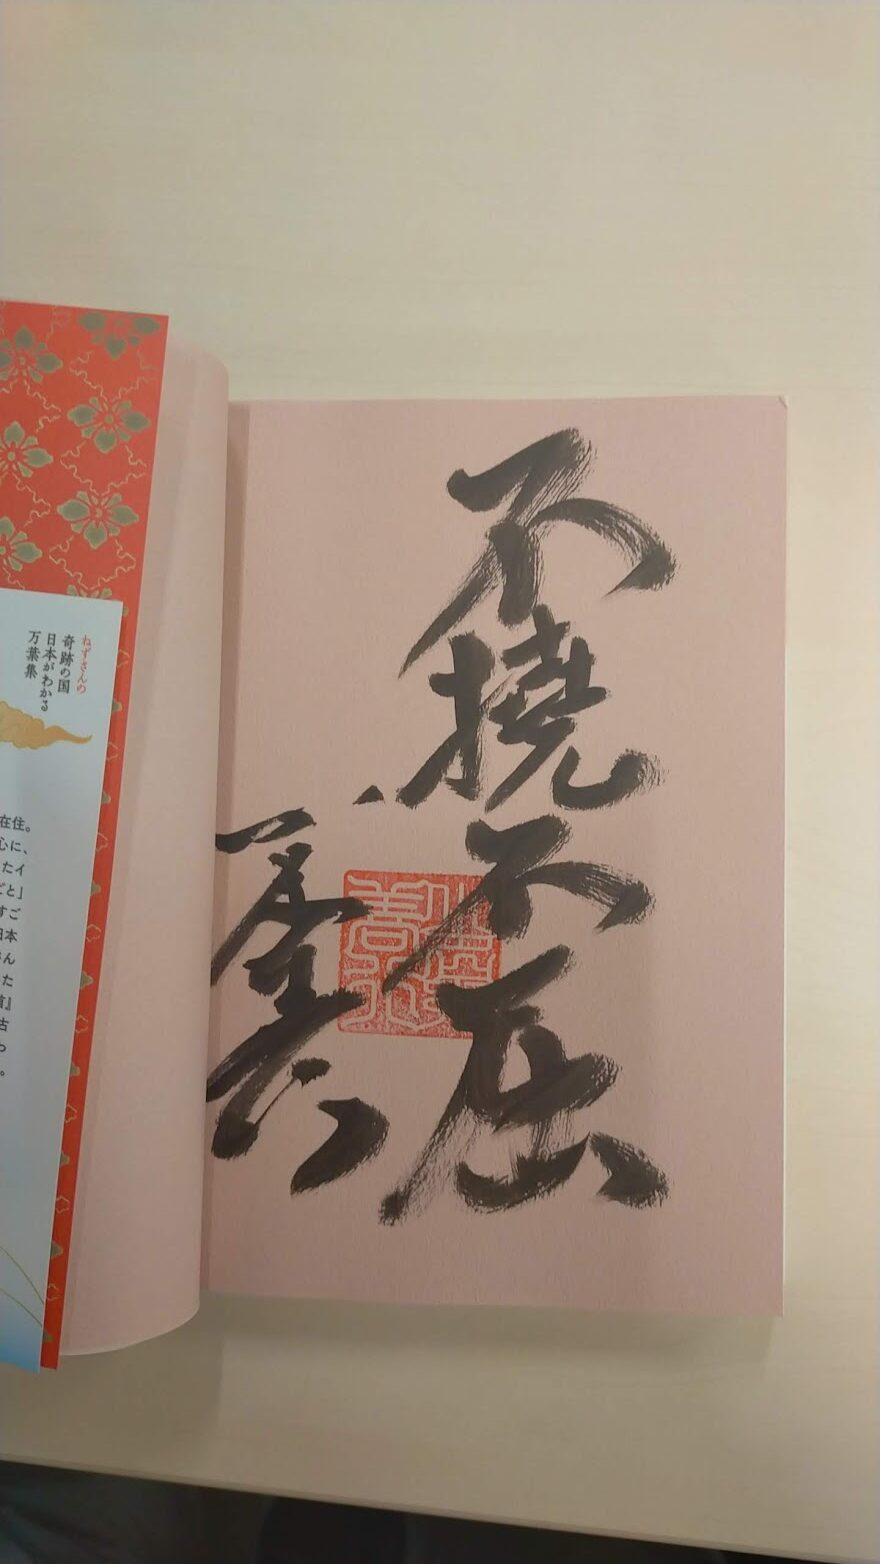 不撓不屈
善行
ねずさんの
奇跡の国
日本がわかる
万葉集
在住。
心に、
たイ
ごと」
すご
日本
さん
た
首』
古
わ
。